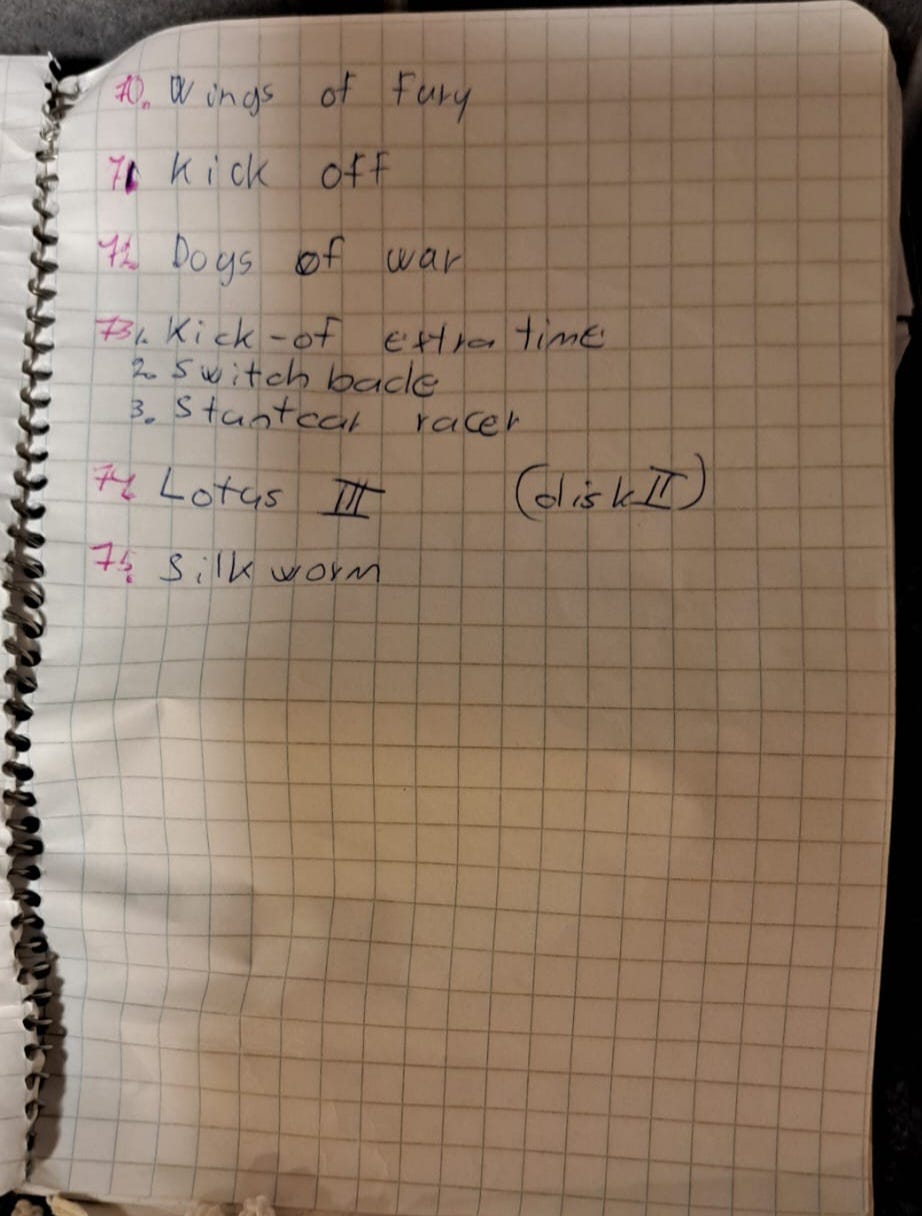 70. Wings of Fury
71 Kick off
72. Dogs of war
73. 1. Kick-of extra time
2. Switch back
3. Stuntcar racer
74. Lotus III (disk II)
75. Silk worm